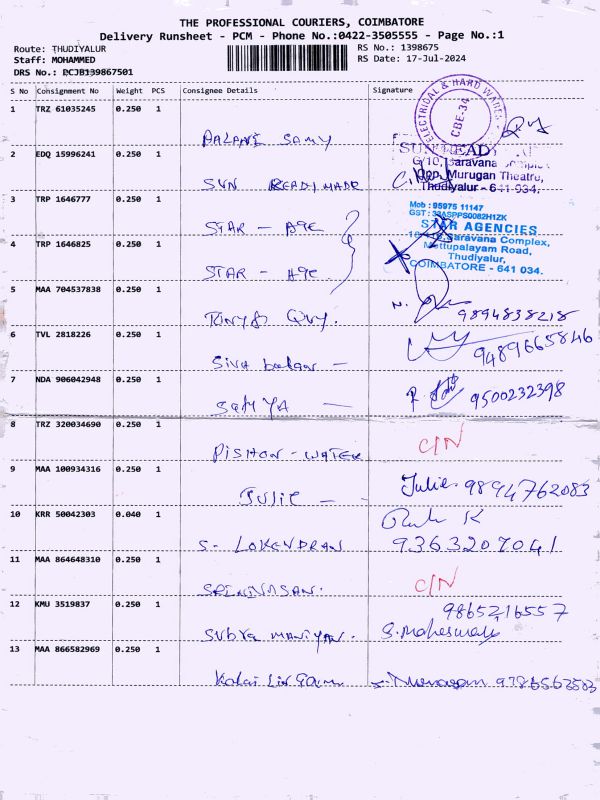 THE PROFESSIONAL COURIERS, COIMBATORE
Delivery Runsheet - PCM - Phone No.:0422-3505555 - Page No.:1
Route: THUDIYALUR
RS No.: 1398675
Staff: MOHAMMED
RS Date: 17-Jul-2024
DRS No.: PCJB139867501
S No Consignment No Weight PCS Consignee Details Signature
1 TRZ 61035245 0.250 1
ELECTRICAL & HARDWARE
CBE-34
PALANI SAMY
2 EDQ 15996241 0.250 1
SUN READYMADE
G/10, Saravana Complex
Opp. Murugan Theatre,
Thudiyalur - 641 034.
SUN READIMADE
3 TRP 1646777 0.250 1
Mob : 95975 11147
GST : 33ASPPS0082H1ZK
STAR AGENCIES
Saravana Complex,
Mettupalayam Road,
Thudiyalur,
COIMBATORE - 641 034.
STAR - AGE
4 TRP 1646825 0.250 1
STAR - AGE
5 MAA 704537838 0.250 1
9894838218
6 TVL 2818226 0.250 1
9489665846
Siva balan -
7 NDA 906042948 0.250 1
9500232398
SATHYA -
8 TRZ 320034690 0.250 1
C/N
- WATER
9 MAA 100934316 0.250 1
Julie - -
Julie. 9894762083
10 KRR 50042303 0.040 1
K
S- LOKENDRAN
9363207041
11 MAA 864648310 0.250 1
C/N
SRINIVASAN.
12 KMU 3519837 0.250 1
9865216557
SUBRAMANIYAN.
S.Maheswari
13 MAA 866582969 0.250 1